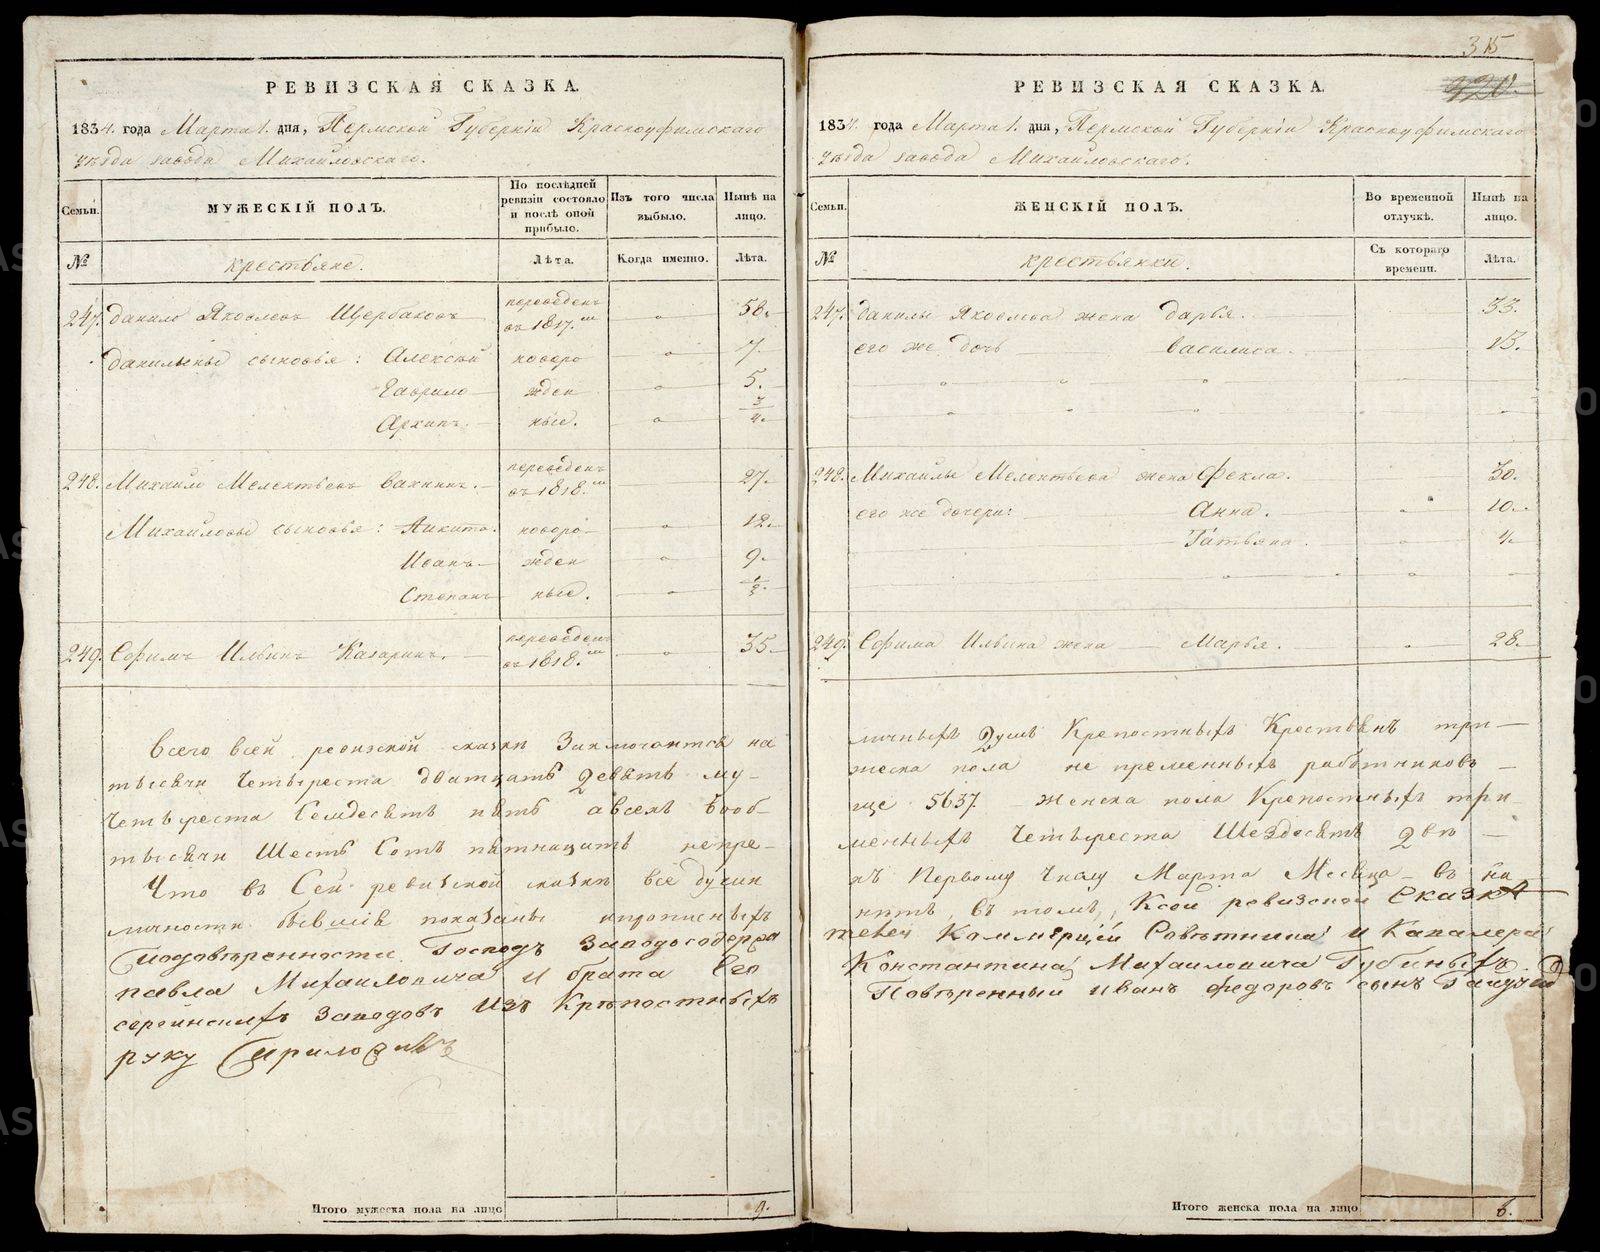 315
420.
РЕВИЗСКАЯ СКАЗКА.
1834. года Марта 1. дня, Пермской Губерніи Красноуфимскаго
уѣзда завода Михайловскаго.
Семьи.
МУЖЕСКІЙ ПОЛЪ.
По послѣдней ревизіи состояло и послѣ оной прибыло.
Изъ того числа выбыло.
Нынѣ на лицо.
№
крестьяне.
Лѣта.
Когда именно.
Лѣта.
247. Данило Яковлевъ Щербаковъ переведенъ въ 1817.мъ 58.
Даниловы сыновья: Алексѣй новоро 7.
Гаврило жден 5.
Архипъ. ные. 3/4.
248. Михайло Мелентьевъ Вахнинъ. переведенъ въ 1818.мъ 27.
Михайловы сыновья: Никита. новоро 12.
Иванъ жден 9.
Степанъ ные. 1/2.
249. Ефимъ Ильинъ Казаринъ. переведенъ въ 1818.мъ 35.
Всего всей ревизской сказки Заключается на
тысячи Четыреста двадцать Девять му-
Четыреста Семдесятъ пять а всехъ вооб-
тысячи Шесть Сотъ пятнацать непре-
Что въ Сей ревизской сказкѣ все души
личности бывшіе показаны и прописныхъ
По довѣренности Господъ Заводосодержа
павла Михаиловича и брата Его
сергинскихъ Заводовъ Изъ Крѣпостныхъ
руку Приложилъ
Итого мужеска пола на лицо 9.
РЕВИЗСКАЯ СКАЗКА.
1834. года Марта 1. дня, Пермской Губерніи Красноуфимскаго
уѣзда завода Михайловскаго.
Семьи.
ЖЕНСКІЙ ПОЛЪ.
Во временной отлучкѣ.
Нынѣ на лицо.
№
крестьянки.
Съ котораго времени.
Лѣта.
247. Данилы Яковлева жена Дарья. 33.
его же дочь Василиса. 13.
248. Михайлы Мелентьева жена Фекла. 30.
его же дочери: Анна. 10.
Татьяна. 4.
249. Ефима Ильина жена Марья. 28.
личныхъ Душъ Крепостныхъ Крестьянъ три
жеска пола не пременныхъ работниковъ
ще 5637 женска пола Крепостныхъ три
менныхъ Четыреста Шездесятъ Две
къ Первому Числу Марта Месяца въ на
нитъ, въ томъ, Ксой ревизской Сказкѣ
телей Коммерцiи Совѣтника и Кавалера
Константина Михаиловича Губиныхъ
Повѣренный Иванъ Федоровъ сынъ
Итого женска пола на лицо 6.
METRIKI.GASO-URAL.RU